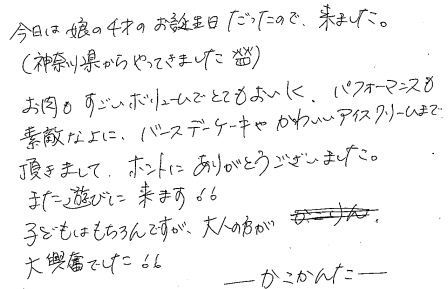 今日は娘の4才のお誕生日だったので、来ました。
(神奈川県からやってきました)
お肉もすごいボリュームでとてもおいしく、パフォーマンスも
素敵なように、バースデーケーキやかわいいアイスクリームまで
頂きまして、ホントにありがとうございました。
また遊びに来ます!!
子どもはもちろんですが、大人の方が
大興奮でした!!
―かこかんたこ―